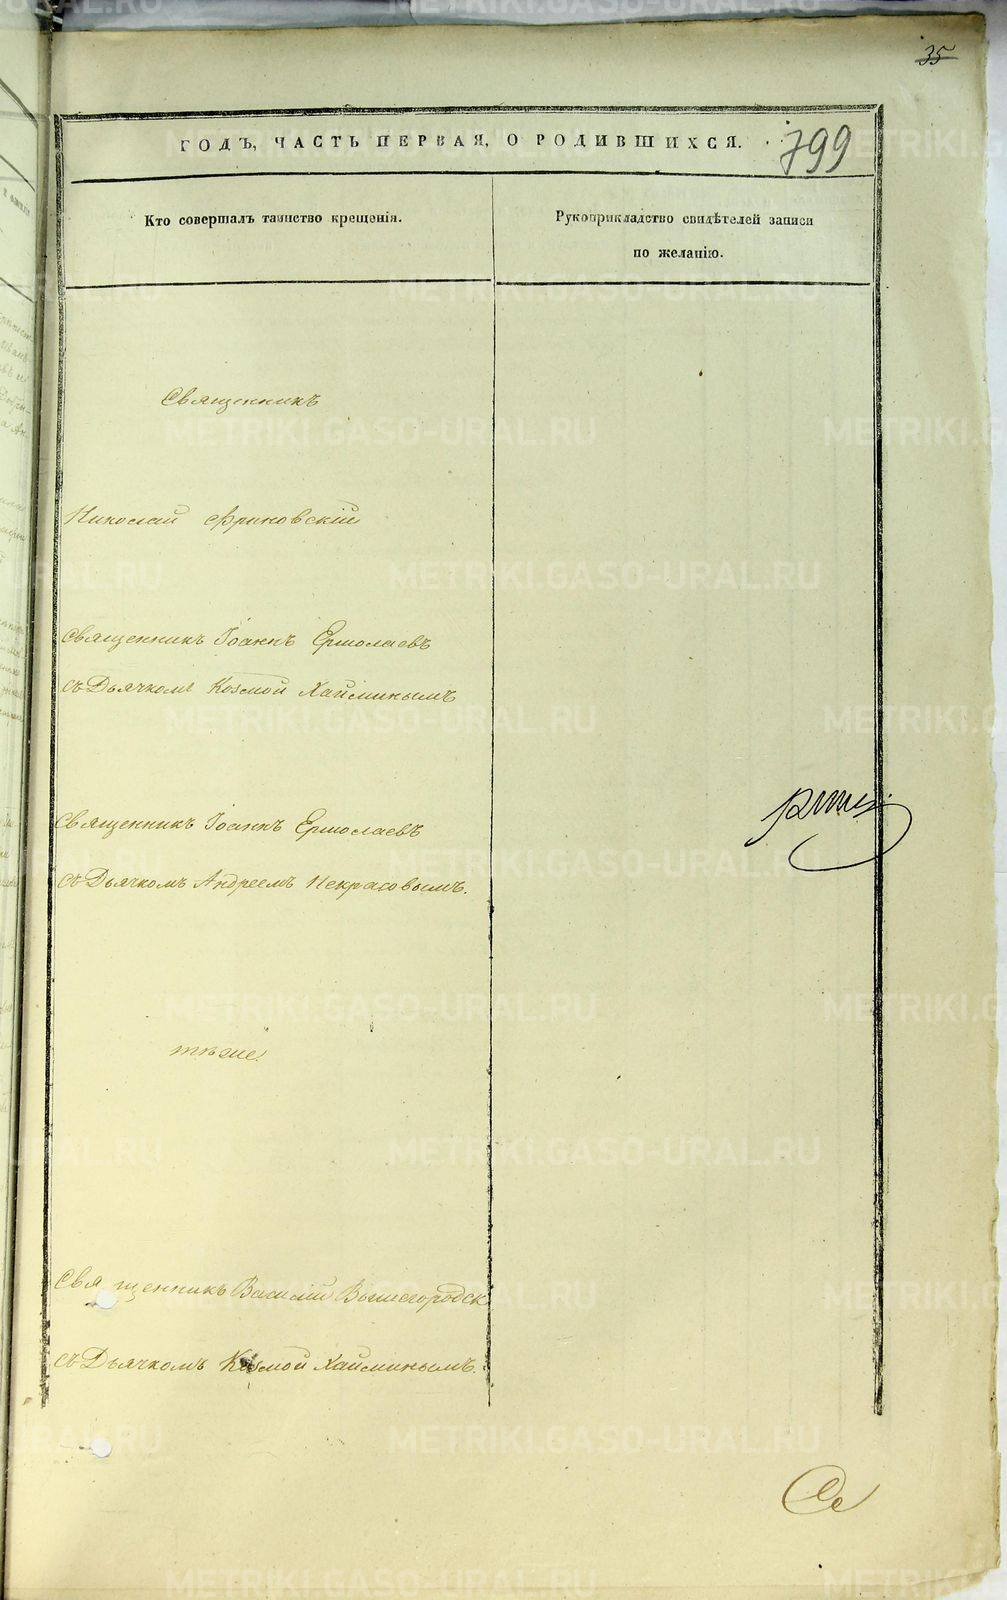 35
ГОДЪ, ЧАСТЬ ПЕРВАЯ, О РОДИВШИХСЯ.
799
Кто совершалъ таинство крещенія.
Рукоприкладство свидѣтелей записи
по желанію.
Священникъ
Николай Фриновскій
Священникъ Іоаннъ Ермолаевъ
съ Дьячкомъ Козмой Хайминымъ
Священникъ Іоаннъ Ермолаевъ
съ Дьячкомъ Андреемъ Некрасовымъ.
тѣже.
Священникъ Василій Вышегородск
съ Дьячкомъ Козмой Хайминымъ.
METRIKI.GASO-URAL.RU